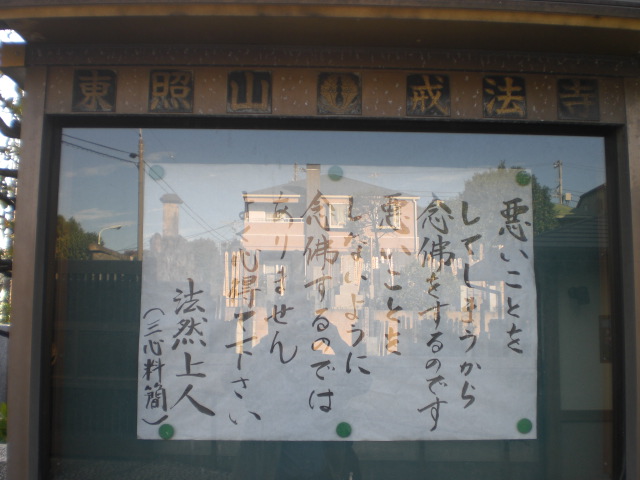 東照山 戒法寺
悪いことを
してしまうから
念佛をするのです
悪いことを
しないように
念佛するのでは
ありません
心得て下さい
法然上人
(三心料簡)